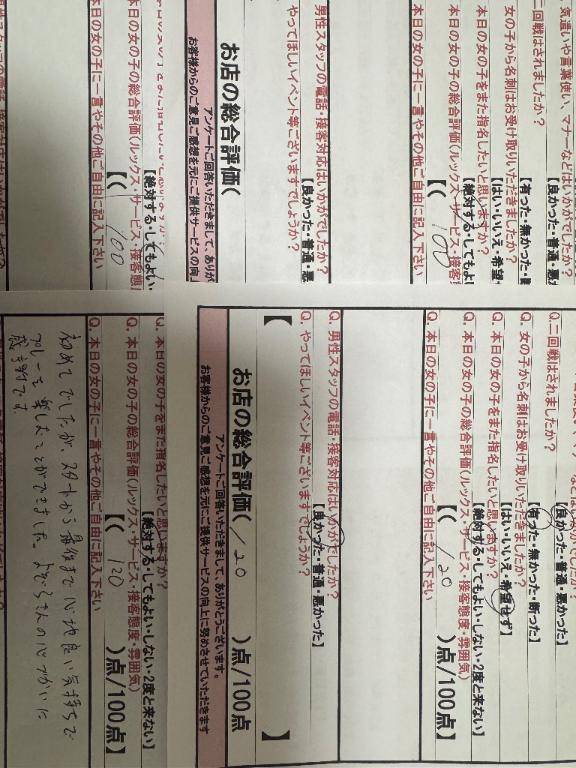 気遣いや言葉使い、マナーなどはいかがでしたか？
【良かった・普通・悪
二回戦はされましたか？
【有った・無かった・断
女の子から名刺はお受け取りいただきましたか？
【はい・いいえ・希望
本日の女の子をまた指名したいと思いますか？
【絶対する・してもよい・
本日の女の子の総合評価（ルックス・サービス・接客
【（ 100
本日の女の子に一言やその他ご自由に記入下さい
男性スタッフの電話・接客対応はいかがでしたか？
【良かった・普通・悪
やってほしいイベント等ございますでしょうか？
お店の総合評価（
アンケートご回答いただきまして、ありが
お客様からのご意見ご感想を元にご提供サービスの向
【絶対する・してもよい・
本日の女の子の総合評価（ルックス・サービス・接客態
【（ 100
本日の女の子に一言やその他ご自由に記入下さい
【良かった・普通・悪かった】
Q. 二回戦はされましたか？
【有った・無かった・断った】
Q. 女の子から名刺はお受け取りいただきましたか？
【はい・いいえ・希望せず】
Q. 本日の女の子をまた指名したいと思いますか？
【絶対する・してもよい・しない・2度と来ない】
Q. 本日の女の子の総合評価（ルックス・サービス・接客態度・雰囲気）
【（ 120 ）点/100点】
Q. 本日の女の子に一言やその他ご自由に記入下さい
Q. 男性スタッフの電話・接客対応はいかがでしたか？
【良かった・普通・悪かった】
Q. やってほしいイベント等ございますでしょうか？
【 】
お店の総合評価（ 120 ）点/100点
アンケートご回答いただきまして、ありがとうございます。
お客様からのご意見ご感想を元にご提供サービスの向上に努めさせていただきます
Q. 本日の女の子をまた指名したいと思いますか？
【絶対する・してもよい・しない・2度と来ない】
Q. 本日の女の子の総合評価（ルックス・サービス・接客態度・雰囲気）
【（ 120 ）点/100点】
Q. 本日の女の子に一言やその他ご自由に記入下さい
初めてでしたが、スタートから最後まで心地良い気持ちで
プレーを楽しむことができました。よぞらさんの心づかいに
感謝です。